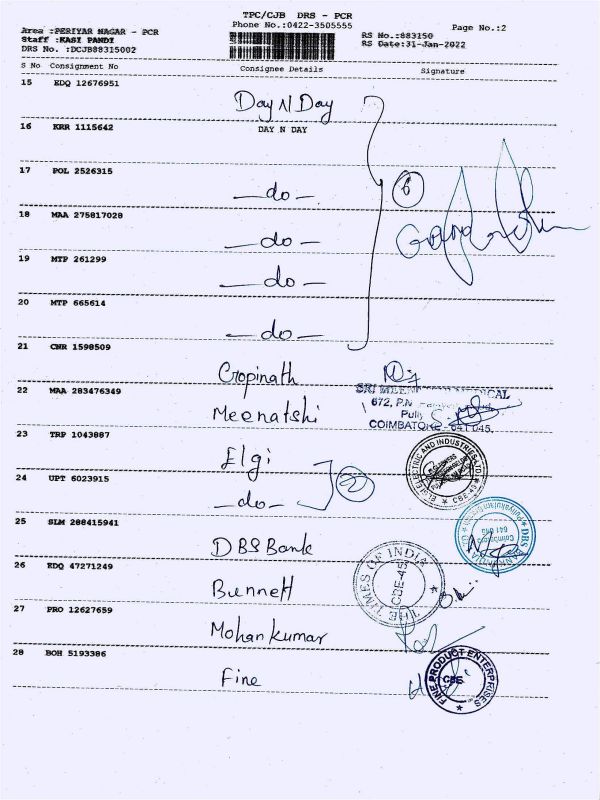 TPC/CJB DRS - PCR
Phone No.:0422-3505555
Page No.:2
Area :PERIYAR NAGAR - PCR
Staff :KASI PANDI
DRS No. :DCJB88315002
RS No.:883150
RS Date:31-Jan-2022
S No Consignment No Consignee Details Signature
15 EDQ 12676951
Day N Day
16 KRR 1115642 DAY N DAY
17 POL 2526315
—do—
6
18 MAA 275817028
—do—
19 MTP 261299
—do—
20 MTP 665614
—do—
21 CNR 1598509
Gopinath
22 MAA 283476349
Meenatshi
SRI MEEN MEDICAL
672, P.N.
Puli
COIMBATORE - 641 045.
23 TRP 1043887
Elgi
ELGI ELECTRIC AND INDUSTRIES LTD
24 UPT 6023915
—do—
2
25 SLM 288415941
DBS Bank
DBS
Coimbatore
26 EDQ 47271249
Bennett
THE TIMES OF INDIA
CBE-45
27 PRO 12627659
Mohan kumar
28 BOH 5193386
Fine
FINE PRODUCT ENTERPRISES
CBE